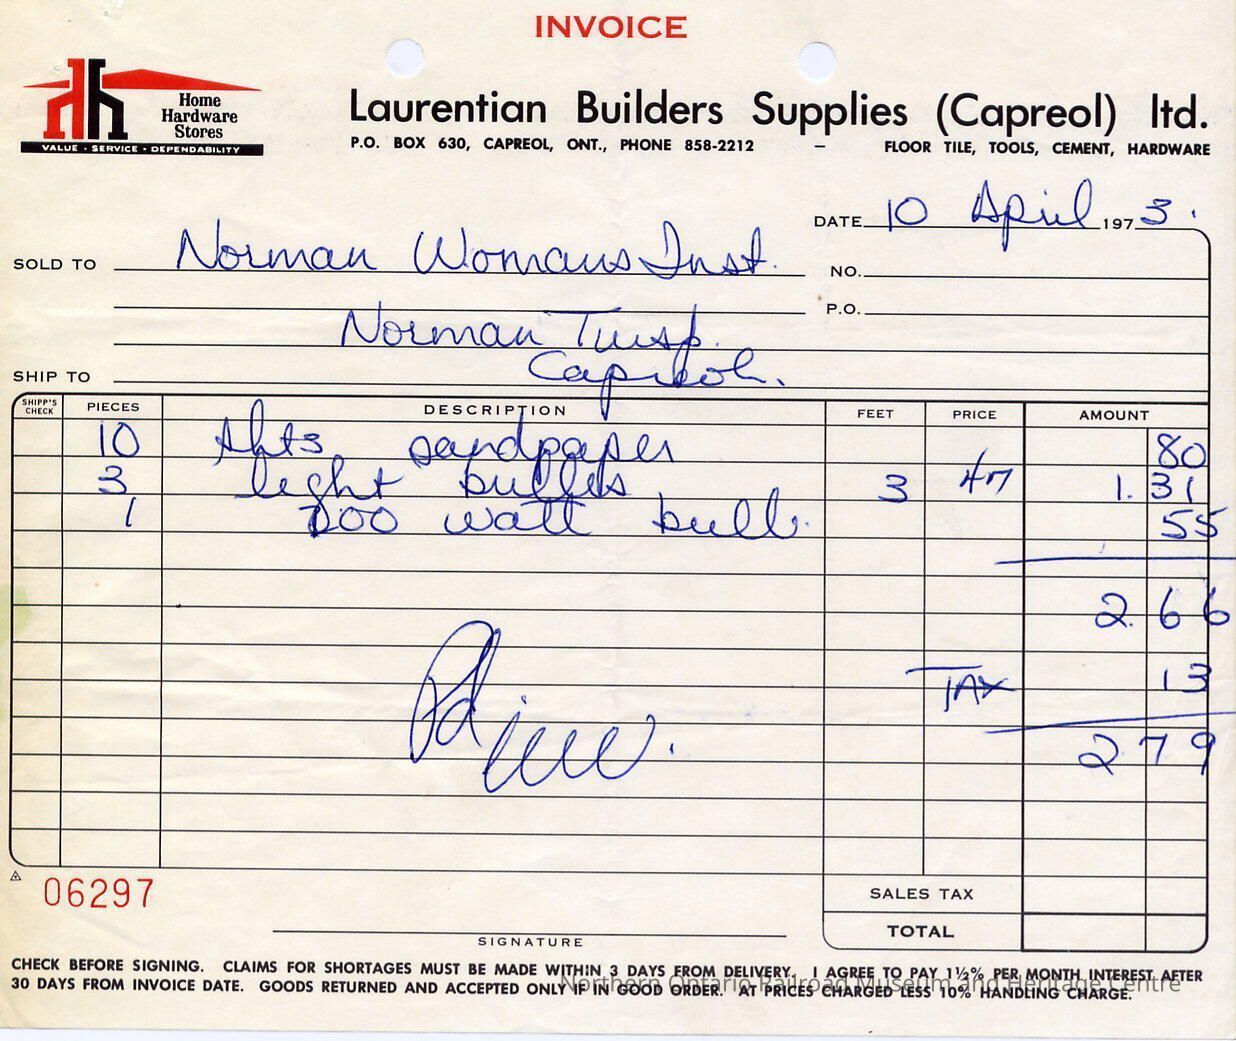 INVOICE
Home
Hardware
Stores
VALUE - SERVICE - DEPENDABILITY
Laurentian Builders Supplies (Capreol) ltd.
P.O. BOX 630, CAPREOL, ONT., PHONE 858-2212 – FLOOR TILE, TOOLS, CEMENT, HARDWARE
DATE 10 April 1973.
SOLD TO Norman Womans Inst.
NO.
P.O.
Norman Twsp.
Capreol.
SHIP TO
SHIPP'S CHECK PIECES DESCRIPTION FEET PRICE AMOUNT
10 shts sandpaper 80
3 light bulbs 3 1.31
1 watt bulb. 55
2.66
TAX 13
2.79
Pd
06297
SALES TAX
TOTAL
SIGNATURE
CHECK BEFORE SIGNING. CLAIMS FOR SHORTAGES MUST BE MADE WITHIN 3 DAYS FROM DELIVERY. I AGREE TO PAY 1½% PER MONTH INTEREST AFTER
30 DAYS FROM INVOICE DATE. GOODS RETURNED AND ACCEPTED ONLY IF IN GOOD ORDER. AT PRICES CHARGED LESS 10% HANDLING CHARGE.
Northern Ontario Railroad Museum and Heritage Centre